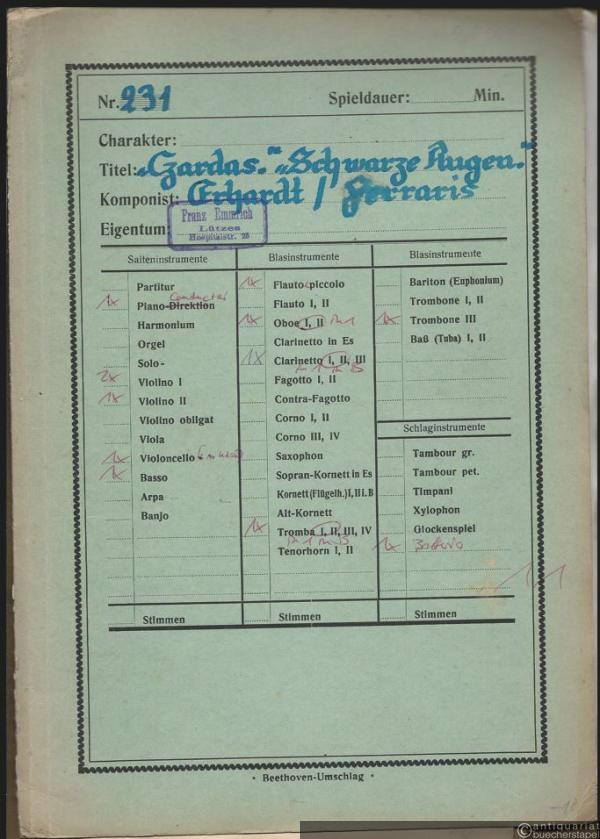 Nr. 231
Spieldauer: Min.
Charakter:
Titel: „Czardas.“ „Schwarze Augen.“
Komponist: Erhardt / Ferraris
Eigentum:
Franz Emmerich
Lützen
Hospitalstr. 25
Saiteninstrumente
Partitur
1x Piano-Direktion Conducter
Harmonium
Orgel
Solo-
2x Violino I
1x Violino II
Violino obligat
Viola
1x Violoncello
1x Basso
Arpa
Banjo
Stimmen
Blasinstrumente
1x Flauto piccolo
Flauto I, II
1x Oboe I, II
Clarinetto in Es
1x Clarinetto I, II, III
in B
Fagotto I, II
Contra-Fagotto
Corno I, II
Corno III, IV
Saxophon
Sopran-Kornett in Es
Kornett (Flügelh.) I, II i. B
Alt-Kornett
1x Tromba I, II, III, IV
in B
Tenorhorn I, II
Stimmen
Blasinstrumente
Bariton (Euphonium)
Trombone I, II
1x Trombone III
Baß (Tuba) I, II
Schlaginstrumente
Tambour gr.
Tambour pet.
Timpani
Xylophon
Glockenspiel
1x
Stimmen
• Beethoven-Umschlag •
©antiquariat
buecherstapel